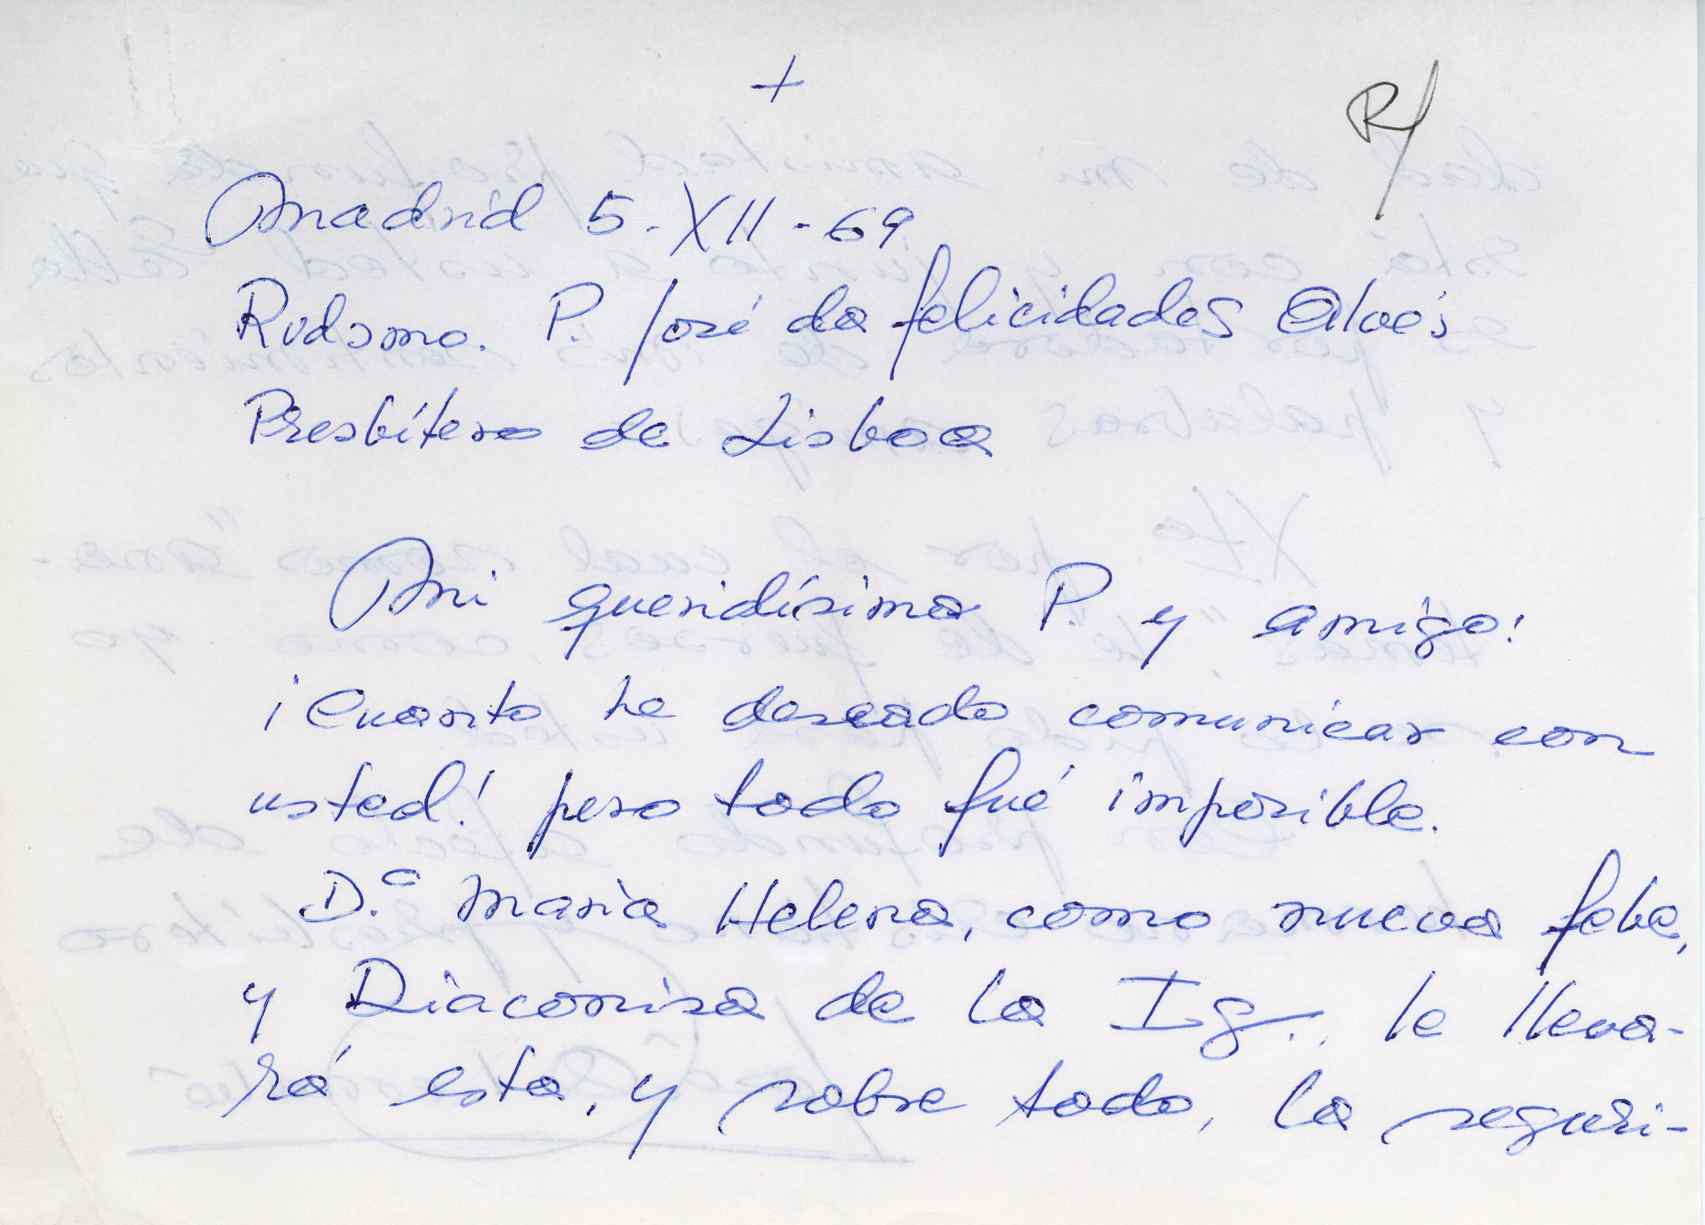 +
R/
Madrid 5-XII-69
Rvdsmo. P. José da felicidades Alves
Presbítero de Lisboa
Mi queridísimo P. y amigo:
¡Cuanto he deseado comunicar con
usted! pero todo fué imposible.
D.ª Maria Helena, como nueva febe,
y Diaconisa de la Ig., le lleva-
rá esta, y sobre todo, la seguri-